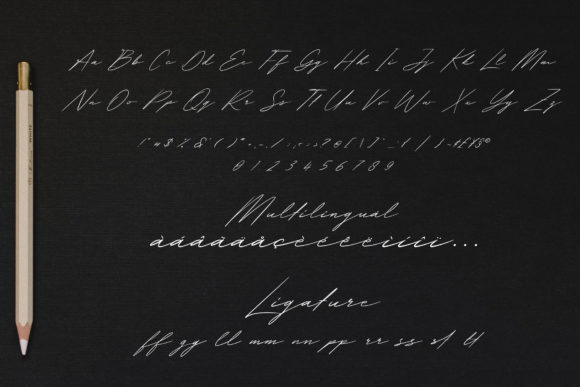 Aa Bb Cc Dd Ee Ff Gg Hh Ii Jj Kk Ll Mm
Nn Oo Pp Qq Rr Ss Tt Uu Vv Ww Xx Yy Zz
0 1 2 3 4 5 6 7 8 9
Multilingual
àáâãäåçèéêëìíîï...
Ligature
ff gg ll mm nn pp rr ss st tt